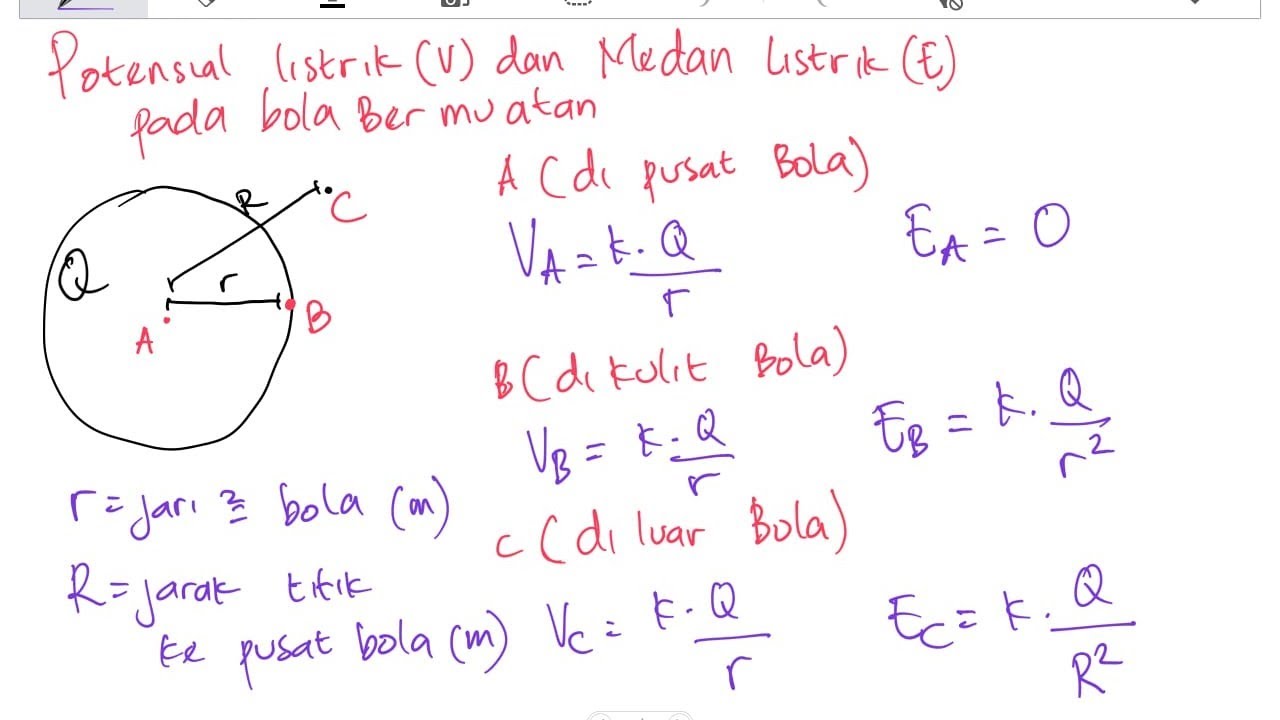 Potensial listrik (V) dan Medan listrik (E)
pada bola Bermuatan
Q
R
C
r
A
B
A (di pusat Bola)
V_A = k . Q / r
E_A = 0
B (di kulit Bola)
V_B = k . Q / r
E_B = k . Q / r²
r = jari ≥ bola (m)
C (di luar Bola)
R = jarak titik
ke pusat bola (m)
V_C = k . Q / r
E_C = k . Q / R²